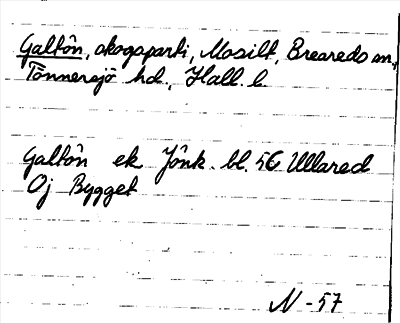 Galtön, skogsparti, Mosilt, Breareds sn,
Tönnersjö hd., Hall. l.
Galtön ek Jönk. bl. 5C Ullared
Oj Bygget
N - 57